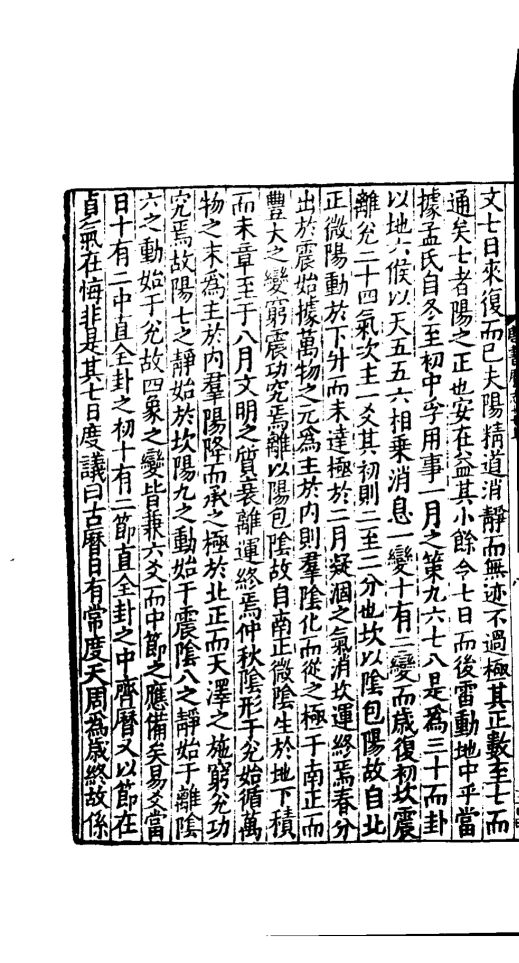 文七日來復而已夫陽精道消靜而無迹不過極其正數至七而
通矣七者陽之正也安在益其小餘令七日而後雷動地中乎當
據孟氏自冬至初中孚用事一月之策九六七八是爲三十而卦
以地六候以天五五六相乘消息一變十有二變而歲復初坎震
離兊二十四氣次主一爻其初則二至二分也坎以陰包陽故自北
正微陽動於下升而未達極於二月凝涸之氣消坎運終焉春分
出於震始據萬物之元爲主於内則羣陰化而從之極于南正而
豐大之變窮震功究焉離以陽包陰故自南正微陰生於地下積
而未章至于八月文明之質衰離運終焉仲秋陰形于兊始循萬
物之末爲主於内羣陽降而承之極於北正而天澤之施窮兊功
究焉故陽七之靜始於坎陽九之動始于震陰八之靜始于離陰
六之動始于兊故四象之變皆兼六爻而中節之應備矣易爻當
日十有二中直全卦之初十有二節直全卦之中齊曆又以節在
貞氣在悔非是其七日度議曰古曆日有常度天周爲歲終故係